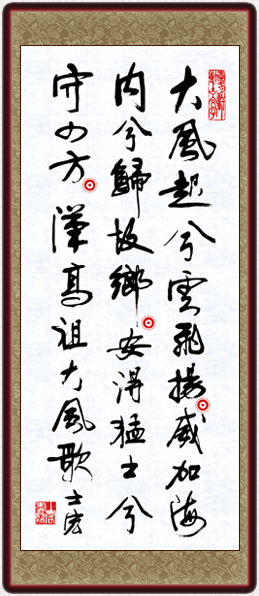 大風起兮雲飛揚威加海
内兮歸故鄉安得猛士兮
守四方漢高祖大風歌
士宏